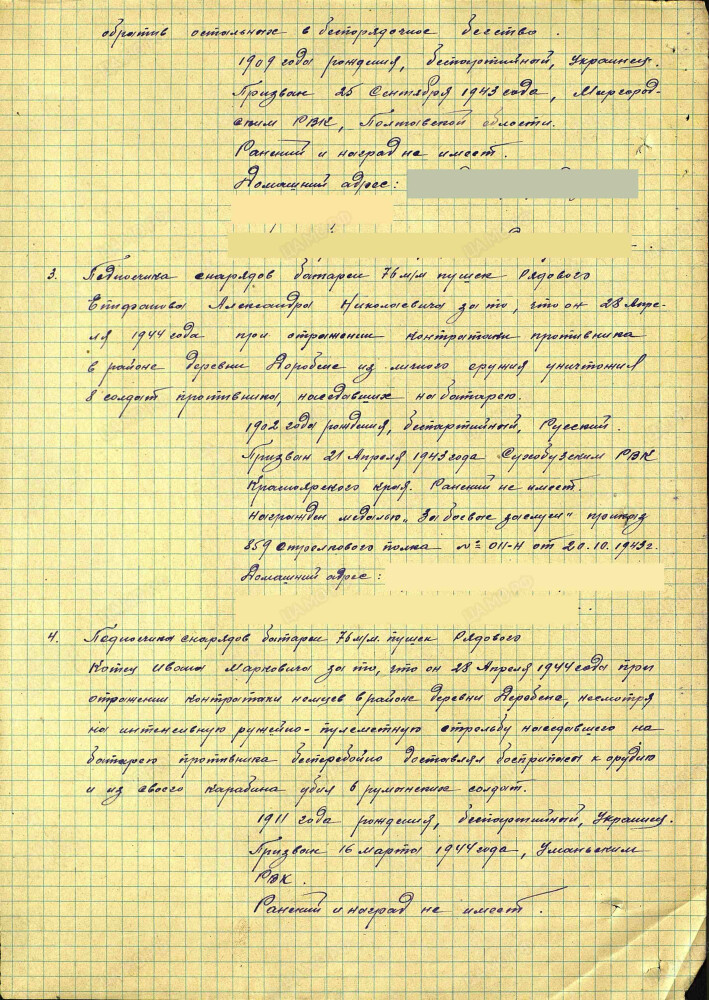 обратив остальных в беспорядочное бегство.
1909 года рождения, беспартийный, Украинец.
Призван 25 Сентября 1943 года, Миргород-
ским РВК, Полтавской области.
Ранений и наград не имеет.
Домашний адрес:
3. Подносчика снарядов батареи 76 м/м пушек Рядового
Епифанова Александра Николаевича за то, что он 28 Апре-
ля 1944 года при отражении контратаки противника
в районе деревни из личного оружия уничтожил
8 солдат противника, наседавших на батарею.
1902 года рождения, беспартийный, Русский.
Призван 21 Апреля 1943 года Сухобузским РВК
Красноярского края. Ранений не имеет.
Награжден медалью „За боевые заслуги" приказ
859 стрелкового полка № 011-Н от 20.10.1943г.
Домашний адрес:
4. Подносчика снарядов батареи 76 м/м. пушек Рядового
Ивана Марковича за то, что он 28 Апреля 1944 года при
отражении контратаки немцев в районе деревни несмотря
на интенсивную ружейно-пулеметную стрельбу наседавшего на
батарею противника бесперебойно доставлял боеприпасы к орудию
и из своего карабина убил румынских солдат.
1911 года рождения, беспартийный, Украинец.
Призван 16 марта 1944 года, Уманьским
РВК.
Ранений и наград не имеет.